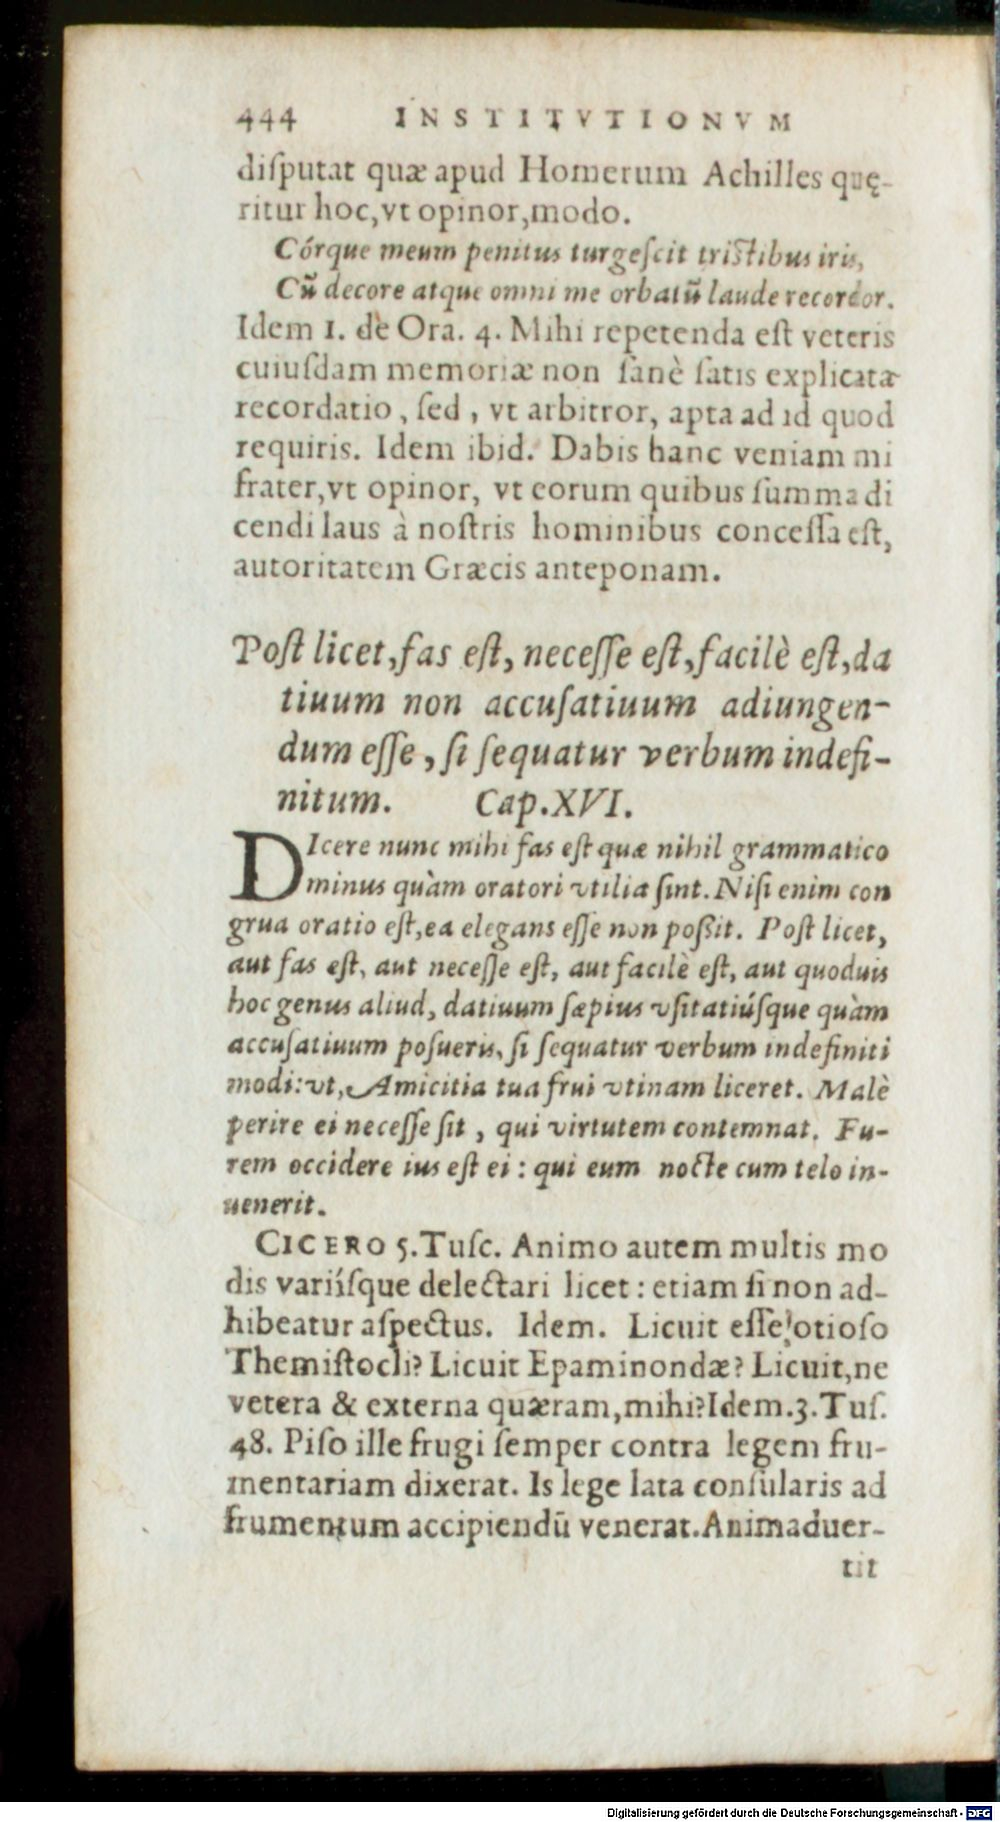 444 INSTITVTIONVM
diſputat quæ apud Homerum Achilles quę-
ritur hoc,vt opinor,modo.
Córque meum penitus turgeſcit triſtibus iris,
Cũ decore atque omni me orbatũ laude recordor.
Idem 1. de Ora. 4. Mihi repetenda eſt veteris
cuiuſdam memoriæ non ſanè ſatis explicata
recordatio , ſed , vt arbitror, apta ad id quod
requiris. Idem ibid. Dabis hanc veniam mi
frater,vt opinor, vt eorum quibus ſumma di
cendi laus à noſtris hominibus conceſſa eſt,
autoritatem Græcis anteponam.
Poſt licet,fas eſt, neceſſe eſt,facilè eſt,da
tiuum non accuſatiuum adiungen-
dum eſſe , ſi ſequatur verbum indefi-
nitum. Cap.XVI.
DIcere nunc mihi fas eſt quæ nihil grammatico
minus quàm oratori vtilia ſint. Niſi enim con
grua oratio eſt,ea elegans eſſe non poßit. Poſt licet,
aut fas eſt, aut neceſſe eſt, aut facilè eſt, aut quoduis
hoc genus aliud, datiuum ſæpius vſitatiúſque quàm
accuſatiuum poſueris, ſi ſequatur verbum indefiniti
modi: vt, Amicitia tua frui vtinam liceret. Malè
perire ei neceſſe ſit , qui virtutem contemnat. Fu-
rem occidere ius eſt ei : qui eum nocte cum telo in-
uenerit.
CICERO 5.Tuſc. Animo autem multis mo
dis variíſque delectari licet : etiam ſi non ad-
hibeatur aſpectus. Idem. Licuit eſſe otioſo
Themiſtocli? Licuit Epaminondæ? Licuit,ne
vetera & externa quæram,mihi?Idem.3.Tuſ.
48. Piſo ille frugi ſemper contra legem fru-
mentariam dixerat. Is lege lata conſularis ad
frumentum accipiendũ venerat.Animaduer-
tit
Digitalisierung gefördert durch die Deutsche Forschungsgemeinschaft - DFG